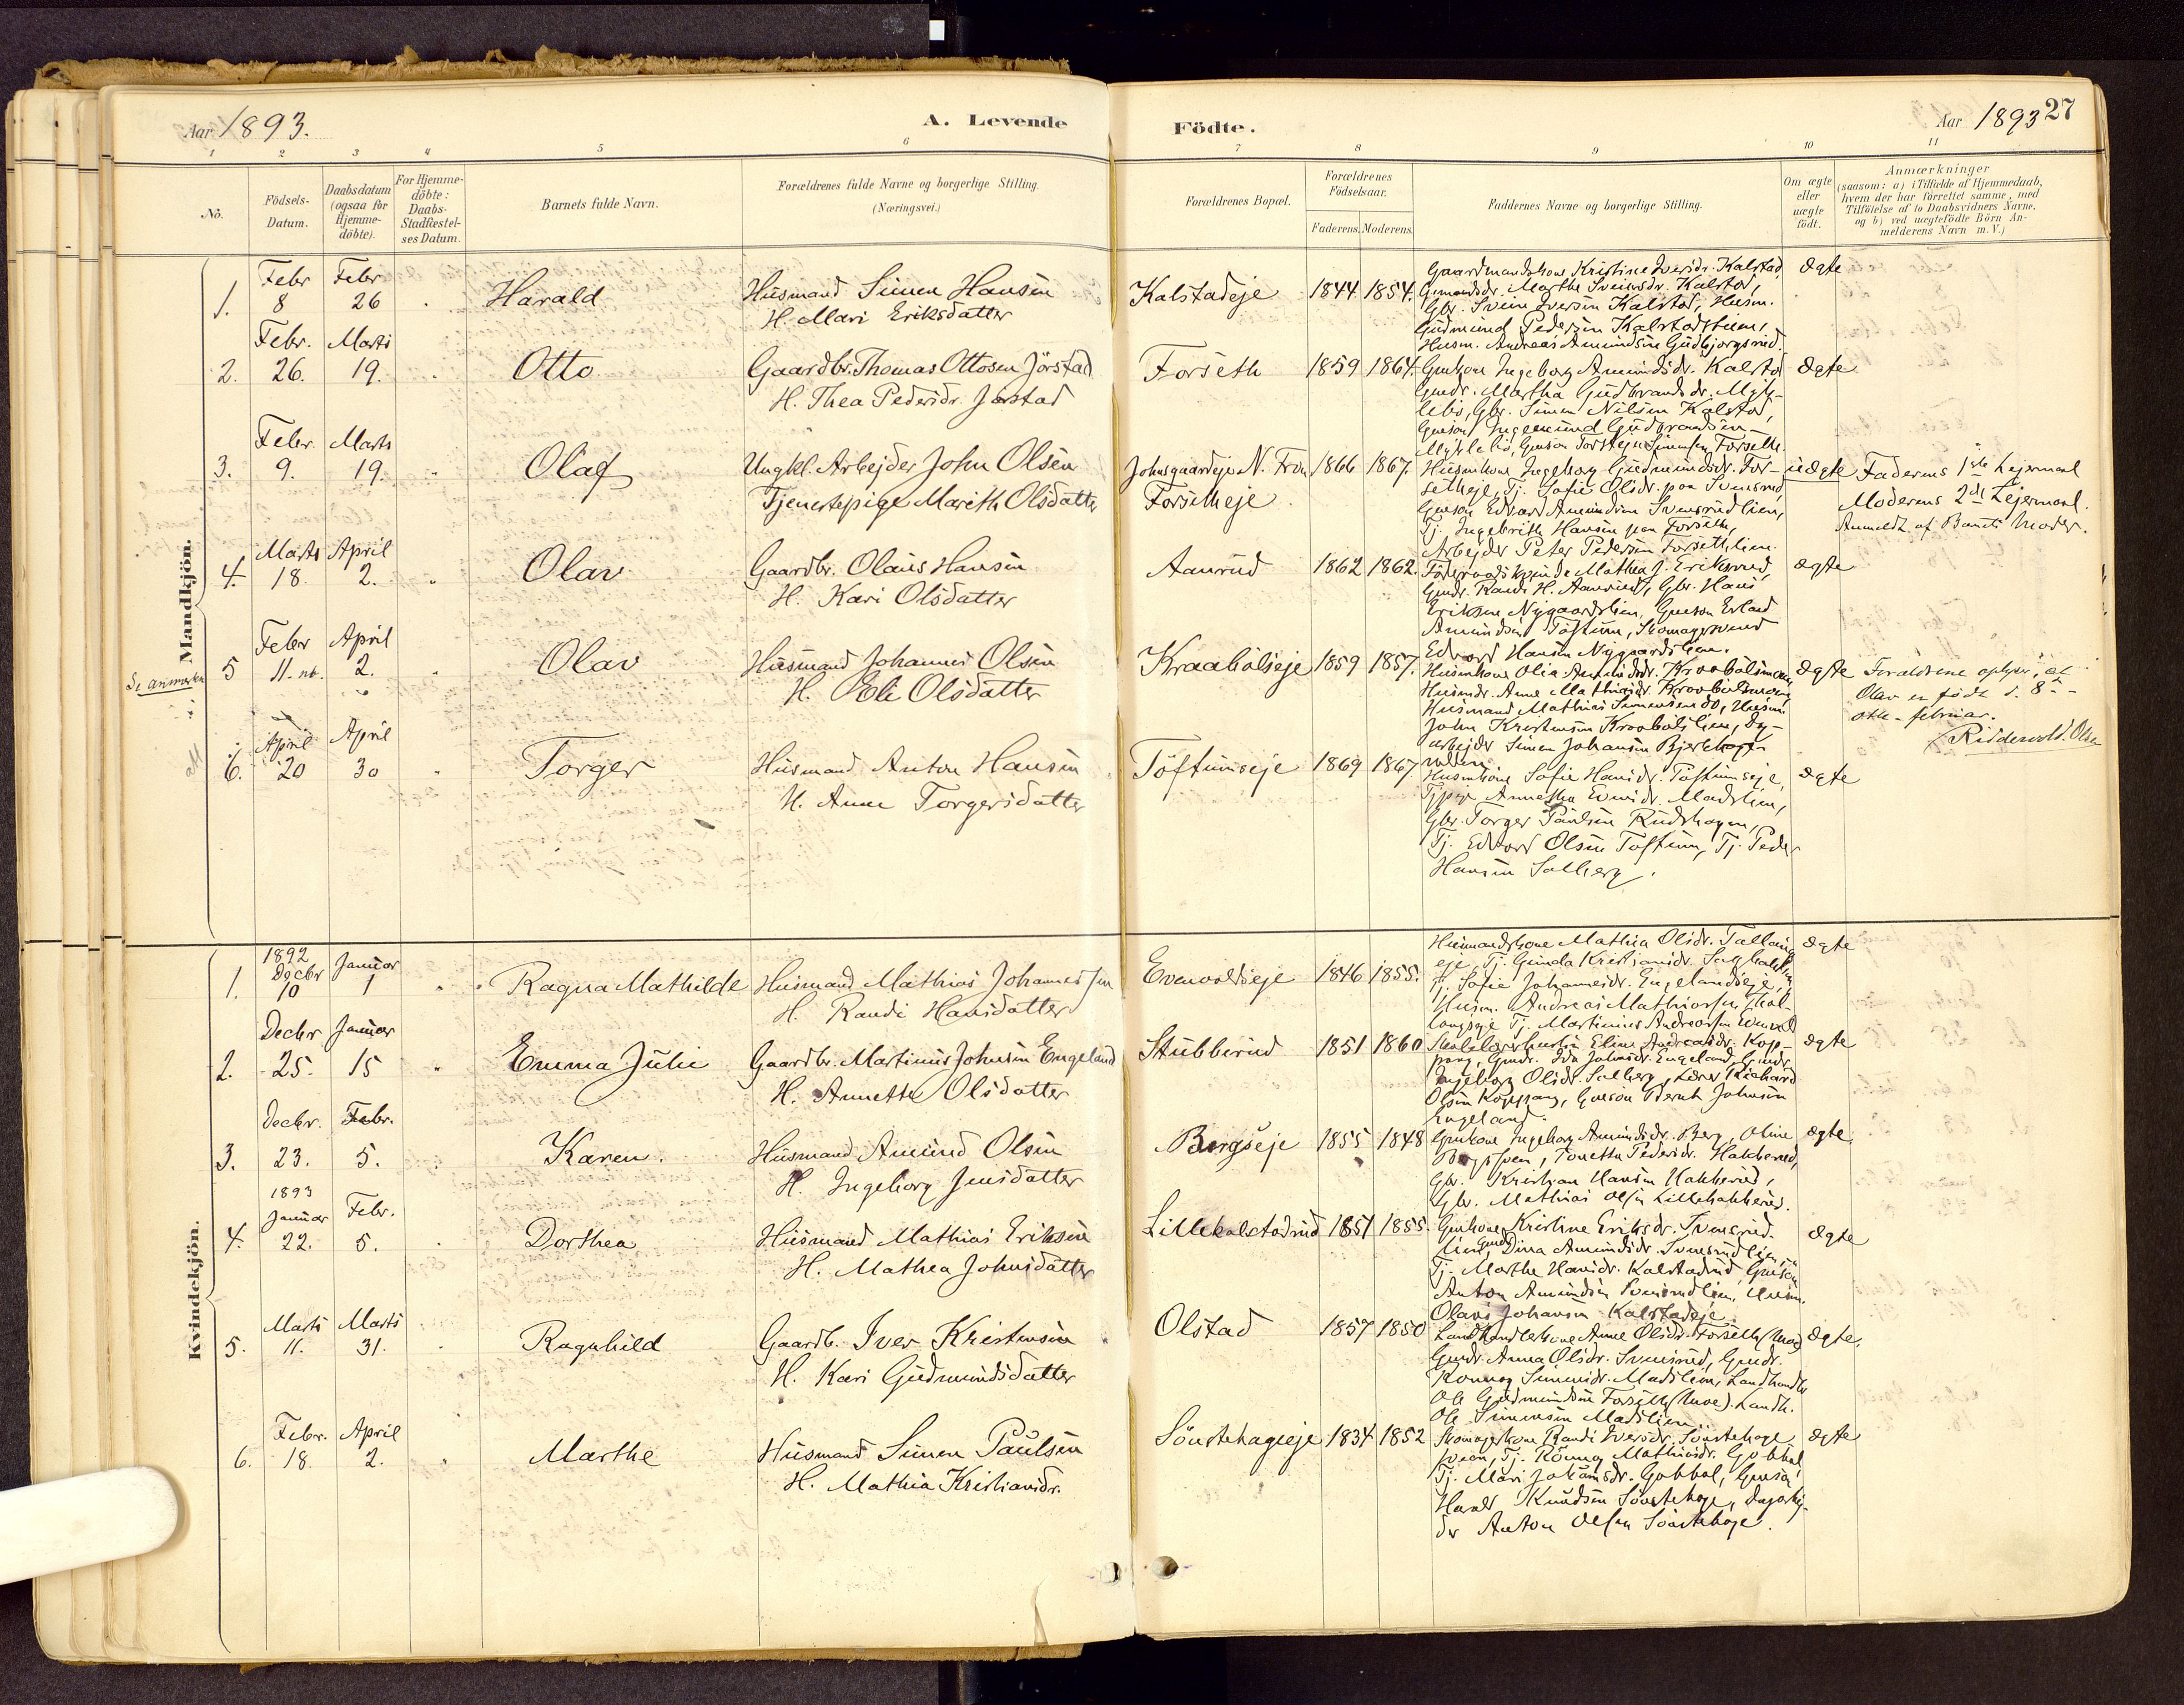 Aar 1893.
A. Levende
Födte.
Aar 1893
27
1 2 3 4 5 6 7 8 9 10 11
Nô.
Födsels-Datum.
Daabsdatum (ogsaa for Hjemme-döbte).
For Hjemme-döbte: Daabs-Stadfæstel-ses Datum.
Barnets fulde Navn.
Forældrenes fulde Navne og borgerlige Stilling.
(Næringsvei.)
Forældrenes Bopæl.
Forældrenes Födselsaar.
Faderens. Moderens.
Faddernes Navne og borgerlige Stilling.
Om ægte eller uægte födt.
Anmærkninger
(saasom: a) i Tilfælde af Hjemmedaab,
hvem der har forrettet samme, med
Tilföielse af to Daabsvidners Navne.
og b) ved uægtefödte Börn An-
melderens Navn m. V.)
Mandkjön.
1. Febr 8 Febr 26 Harald
Husmand Simen Hansen
H. Mari Eriksdatter
Kalstadeje 1844 1854.
Gaardmandskone Kristine Iversdr. Kalstad
Gmandsdr. Marthe Svensdr. Kalstad,
Gbr. Svein Iversen Kalstad, Husm.
Gudmund Pedersen Kalstadstuen,
Husm. Andreas Amundsen Gudbjorgsrud.
ægte
2. Febr. 26. Marts 19. Otto
Gaardbr. Thomas Ottosen Jörstad
H. Thea Pedersdr. Jörstad
Forseth 1859 1864.
Gmkone Ingeborg Amundsdr. Kalstad
Gmdr. Martha Gudbrandsdr. Myk-
lebö, Gbr. Simen Nilsen Kalstad,
Gmson Ingemund Gudbrandsen
Myklebö, Gmson Torstein Simensen Forseth.
ægte
3. Febr. 9. Marts 19. Olaf
Ungkl. Arbejder John Olsen
Tjenestepige Marith Olsdatter
Johnsgaardeje N. Fron
Forsetheje
1866 1867.
Husmkone Ingeborg Gudmundsdr. For-
setheje, Tj. Sofie Olsdr. paa Svensrud,
Gmson Edvard Amundsen Svensrudlien,
Tj. Ingebrith Hansen paa Forseth,
Arbejder Peter Pedersen Forsethlien.
uægte
Faderens 1ste Lejermaal
Moderens 2det Lejermaal.
Anmeldt af Barnets Moder.
4. Marts 18. April 2. Olav
Gaardbr. Olaus Hansen
H. Kari Olsdatter
Aanrud 1862 1862.
Föderaadskvinde Mathea J. Eriksrud,
Gmdr. Randi H. Aanrud, Gbr. Hans
Eriksen Nygaardslien, Gmson Erland
Amundsen Töftum, Skomagersvend
Edvard Hansen Nygaardslien.
ægte
Se anmærkn
5 Febr 11. nb. April 2. Olav
Husmand Johannes Olsen
H. Eli Olsdatter
Kraabölseje 1859 1857.
Husmkone Olia Amundsdr. Kraabölsmoen
Husmdr. Anne Mathiasdr. Kraabölsmoen,
Husmand Mathias Simensen do, Husm.
John Kristensen Kraabölslien, Dag-
arbejder Simen Johansen Bjerkhage-
ægte
Forældrene oplyser, at
Olav er födt d. 8--
otte - februar.
Ridderwold. Olsen
6. April 20 April 30 Torger
Husmand Anton Hansen
H. Anne Torgersdatter
Töftumseje 1869 1867
Husmkone Sofie Hansdr. Töftumseje,
Tjpige Annethe Evensdr. Madslien,
Gbr. Torger Paulsen Rudshagen,
Tj. Edvard Olsen Töftum, Tj. Peder
Hansen Salberg.
ægte
Kvindekjön.
1. 1892 Decbr 10 Januar 1 Ragna Mathilde
Husmand Mathias Johannessen
H. Randi Hansdatter
Evenvoldseje 1846 1855.
Husmandskone Mathia Olsdr. Tallang
eje, Tj. Gunda Kristjansdr.
Tj. Sofie Johannesdr. Engelandseje,
Husm. Andreas Mathiassen
Tj. Martinus Andreassen
ægte
2. Decbr 25. Januar 15 Emma Julie
Gaardbr. Martinus Johnsen Engeland
H. Annette Olsdatter
Stubberud 1851 1860
Eline Andreasdr. Kop-
pang, Gmdr. Ida Johnsdr. Engeland, Gmdr.
Ingeborg Olsdr. Salberg, Lærer Richard
Olsen Koppang, Gmson Bernt Johnsen
Engeland.
ægte
3. Decbr. 23. Febr. 5. Karen.
Husmand Amund Olsen
H. Ingeborg Jensdatter
Bergseje 1855 1848
Gmkone Ingeborg Amundsdr. Berg, Oline
Tonetta Pedersdr. Hakkerud,
Gbr. Kristjan Hansen Hakkerud,
Gbr. Mathias Olsen Lillehakkerud.
ægte.
4. 1893 Januar 22. Febr. 5. Dorthea
Husmand Mathias Eriksen
H. Mathea Johnsdatter
Lillekalstadrud 1851 1855.
Gmkone Kristine Eriksdr. Svensrud-
lien, Gmdr. Dina Amundsdr. Svensrudlien,
Tj. Marthe Hansdr. Kalstadrud, Gmson
Anton Amundsen Svensrudlien, Husm.
Olaus Johansen Kalstadeje.
ægte
5. Marts 11. Marts 31. Ragnhild
Gaardb. Iver Kristensen
H. Kari Gudmundsdatter
Olstad 1857 1850
Landhandlerkone Anne Olsdr. Forseth (Moe)
Gmdr. Anna Olsdr. Svensrud, Gmdr.
Rönnog Simensdr. Madslien, Landhandler
Ole Gudmundsen Forseth (Moe). Landh.
Ole Simensen Madslien
ægte.
6. Febr. 18. April 2. Marthe
Husmand Simen Paulsen
H. Mathia Kristiansdr.
Sönstehageeje 1834 1852
Skomagerkone Randi Iversdr. Sönstehage
Tj. Rönnog Mathiasdr. Gobbol,
Tj. Mari Johansdr. Gobbol, Gmson
Harald Knudsen Sönstehage, Dagarbej-
der Anton Olsen Sönstehage.
ægte